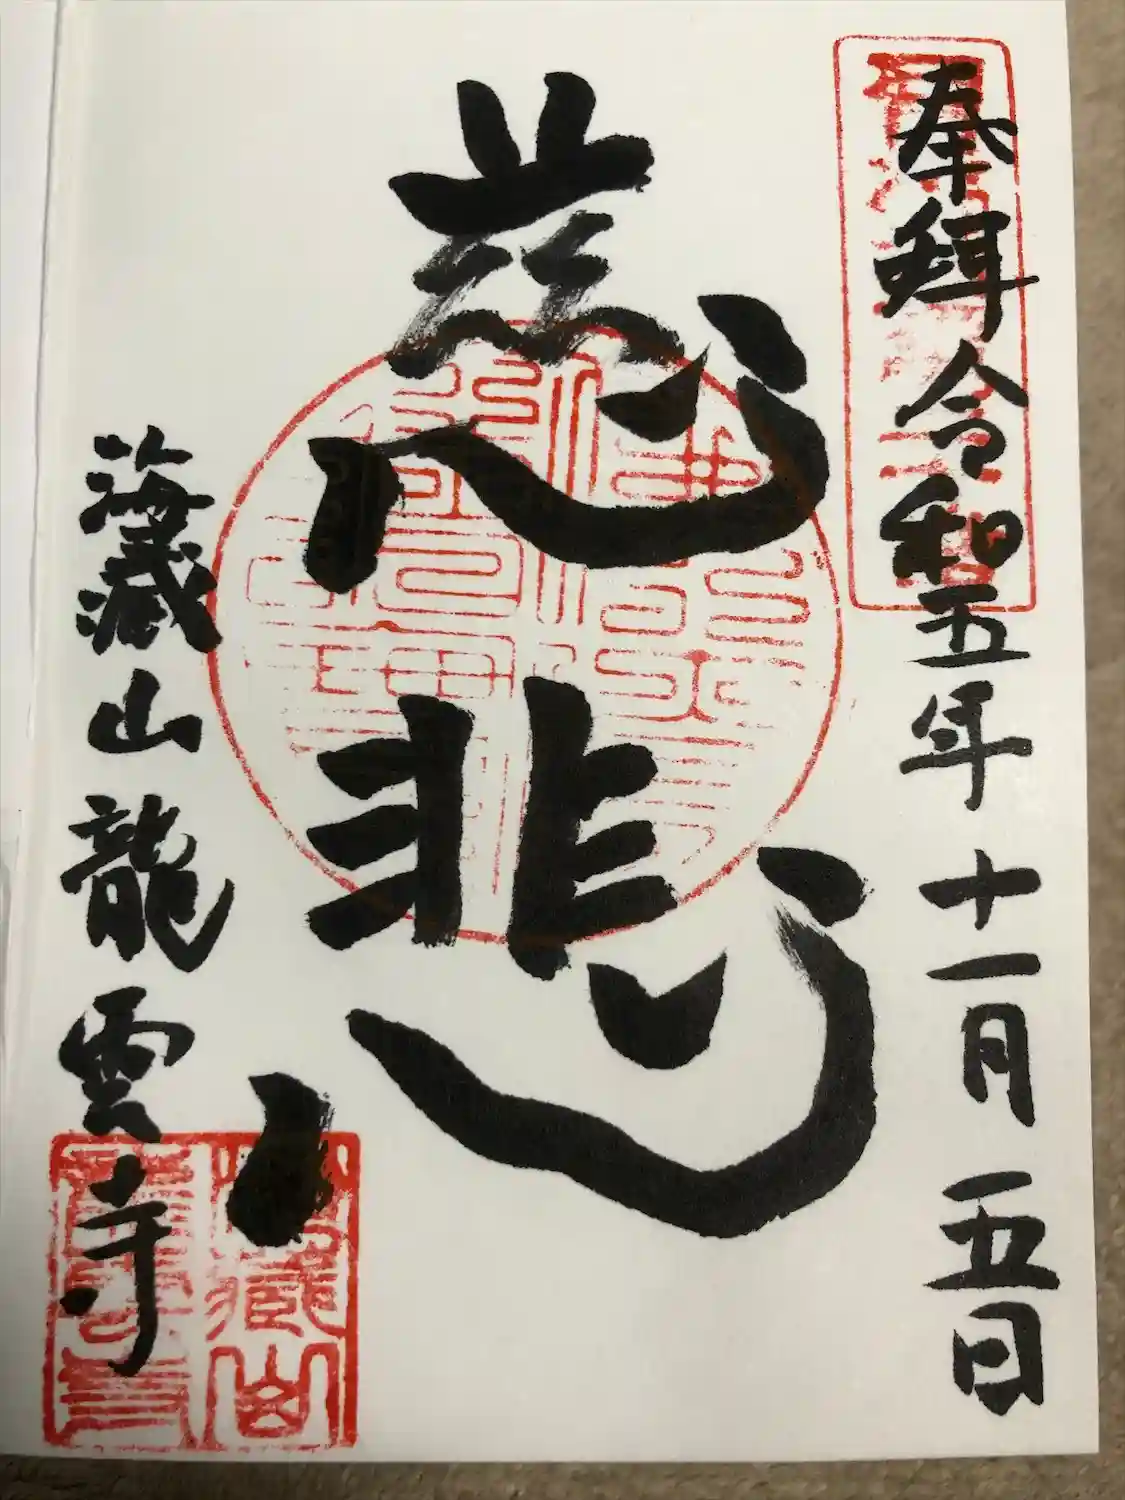 奉拜令和五年十一月五日
慈悲
海藏山龍雲寺